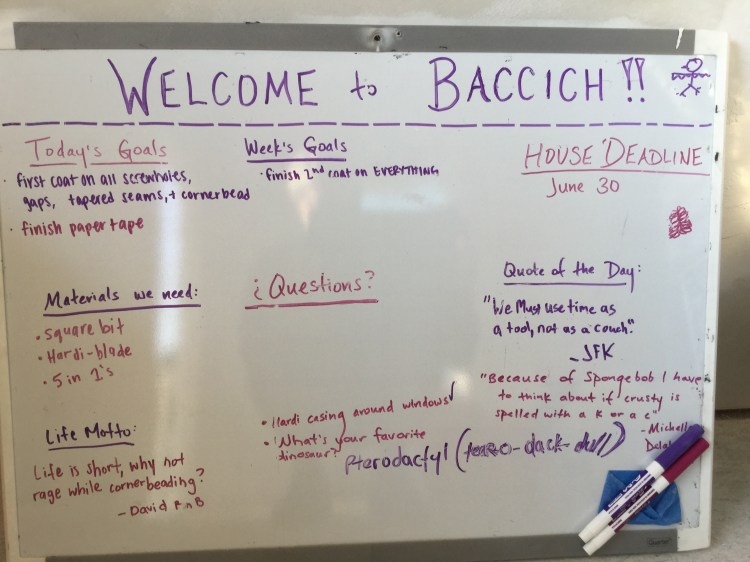 WELCOME to BACCICH!!
Today's Goals
· first coat on all screwholes,
gaps, tapered seams, + cornerbead
· finish paper tape
Week's Goals
· finish 2nd coat on EVERYTHING
HOUSE DEADLINE
June 30
Materials we need:
· square bit
· Hardi-blade
· 5 in 1's
¿Questions?
· Hardi casing around windows ✓
· What's your favorite
dinosaur?
Pterodactyl (-dack-dull)
Quote of the Day:
"We Must use time as
a tool, not as a couch."
- JFK
"Because of Spongebob I have
to think about if crusty is
spelled with a k or a c"
Life Motto:
Life is short, why not
rage while cornerbeading?
- David R n B